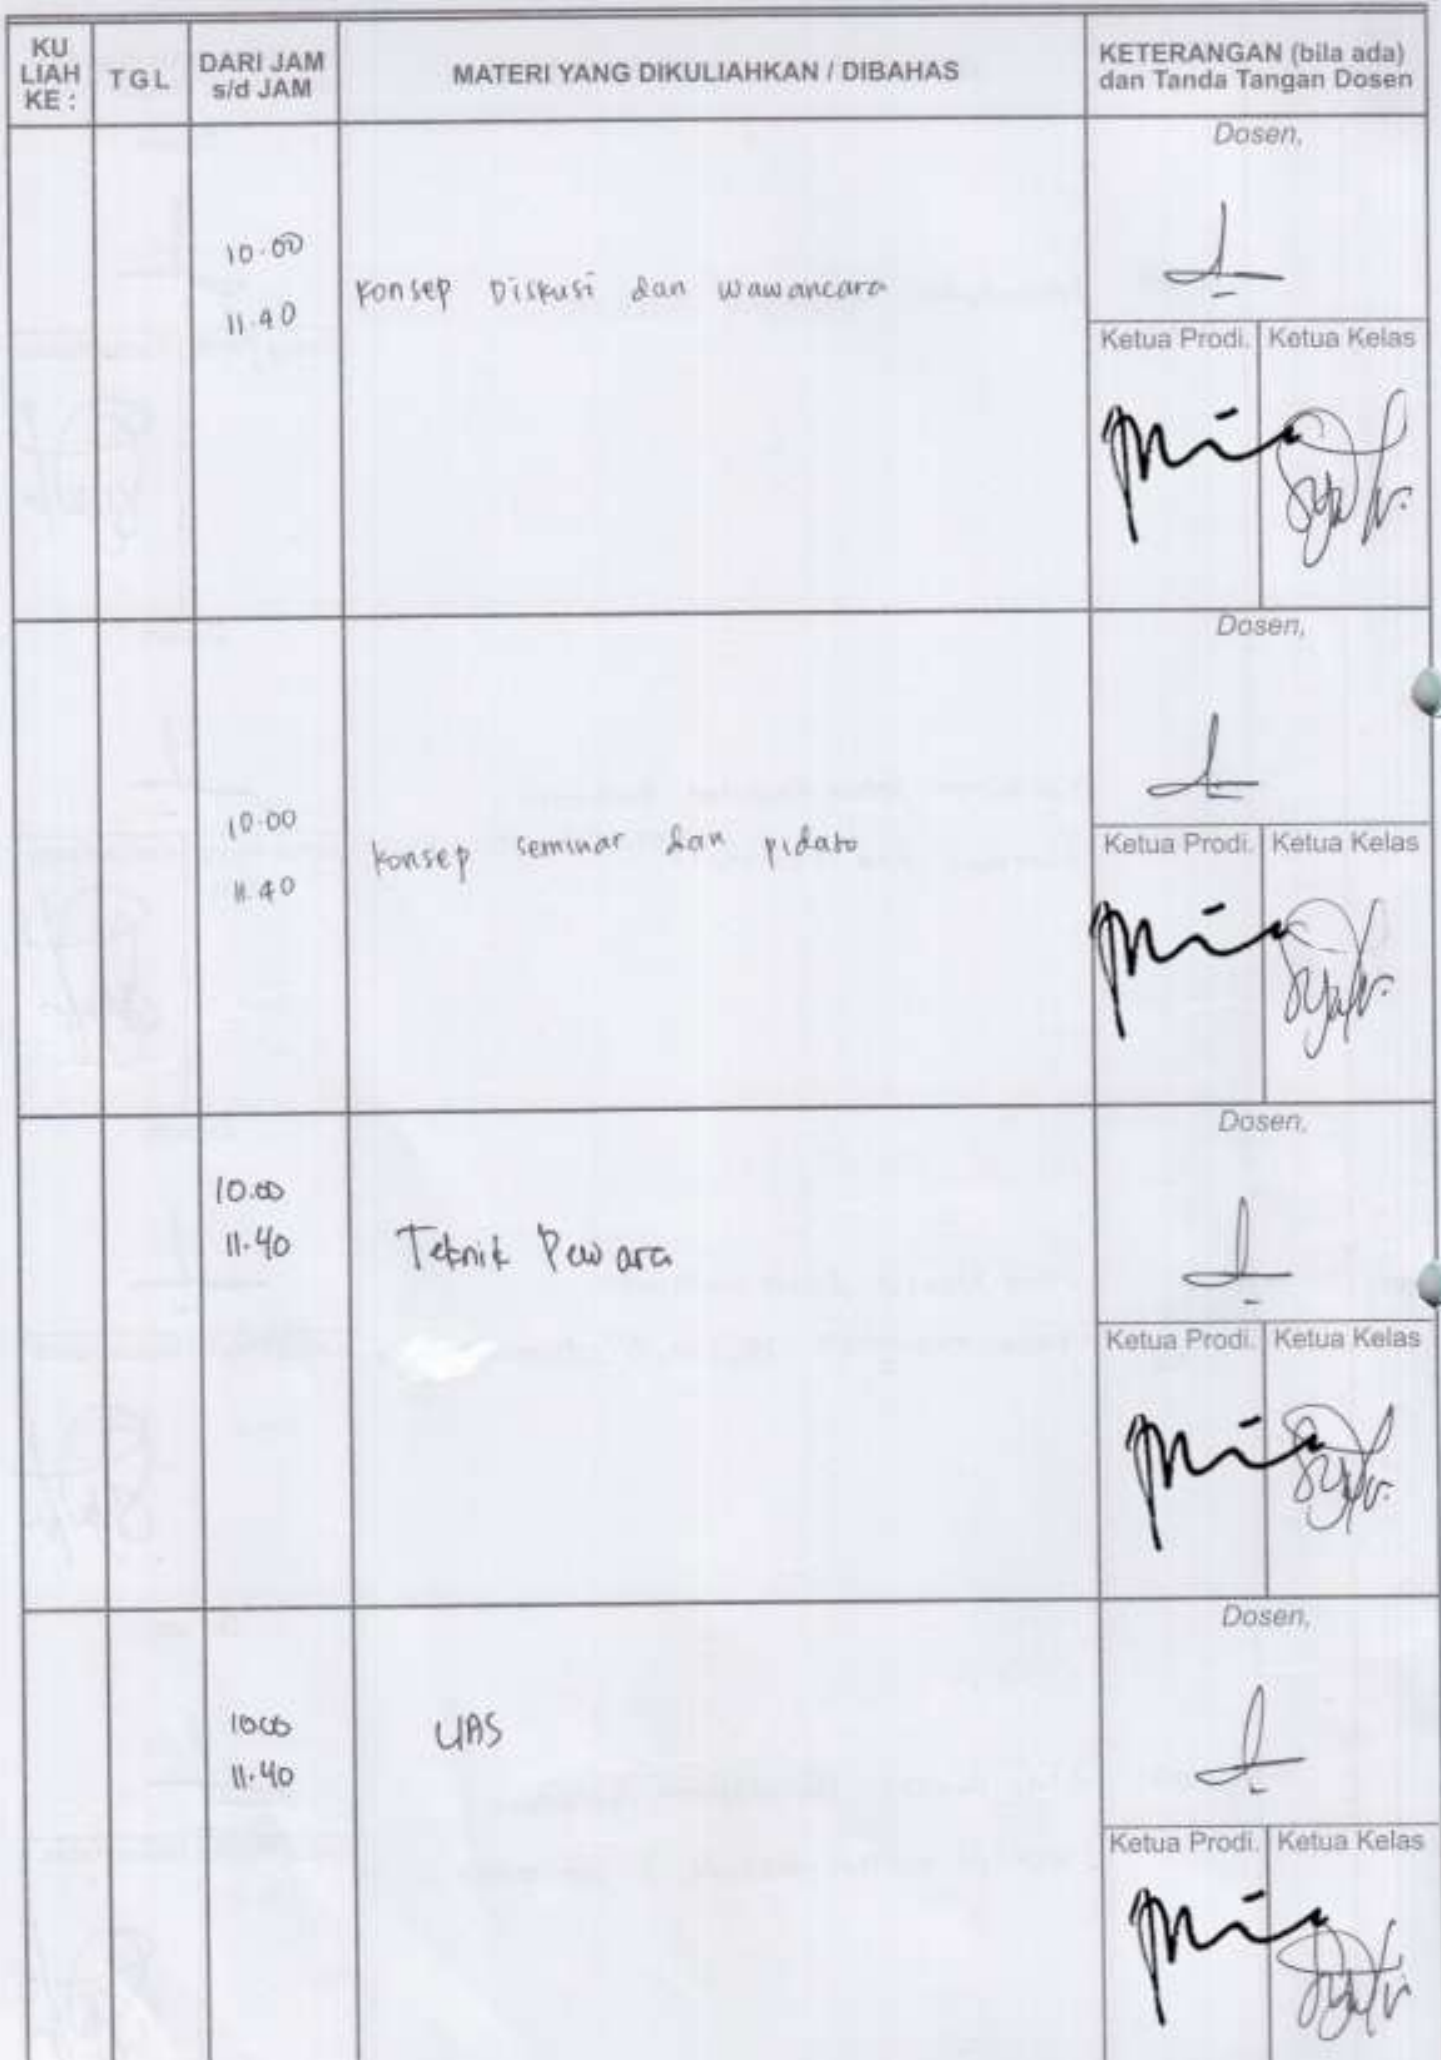 KU LIAH KE :
TGL
DARI JAM s/d JAM
MATERI YANG DIKULIAHKAN / DIBAHAS
KETERANGAN (bila ada) dan Tanda Tangan Dosen
Dosen,
10.00
11.40
Konsep Diskusi dan wawancara
Ketua Prodi. Ketua Kelas
Dosen,
10.00
11.40
Konsep seminar dan pidato
Ketua Prodi. Ketua Kelas
Dosen,
10.00
11.40
Teknik Pewara
Ketua Prodi. Ketua Kelas
Dosen,
10 00
11.40
UAS
Ketua Prodi. Ketua Kelas